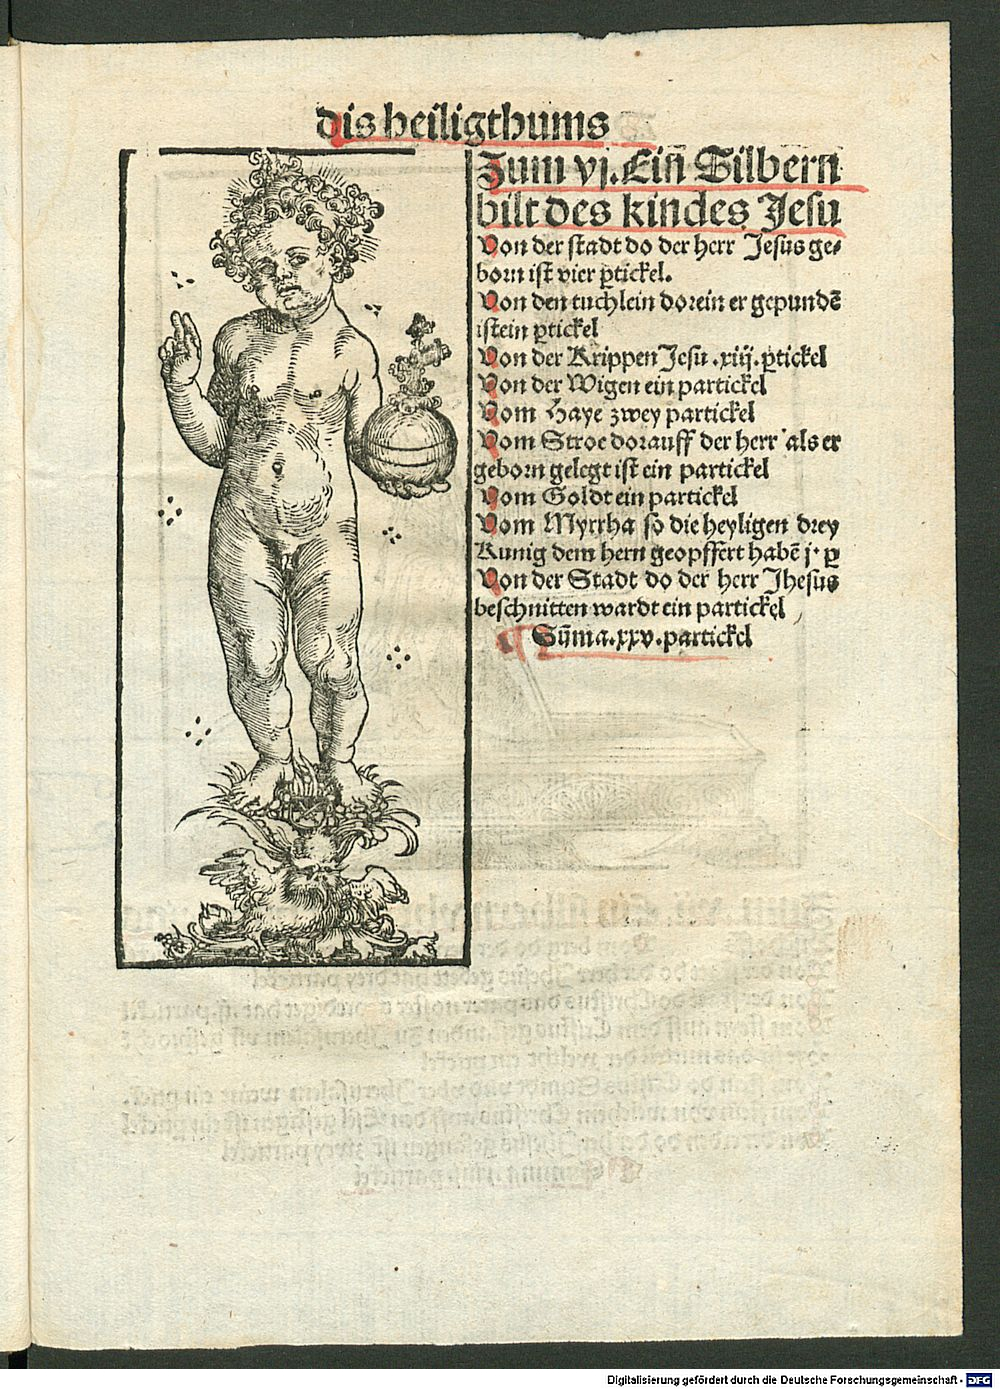 dis heiligthums
Zum vj. Ein̄ Silbern
bilt des kindes Jesu
Von der stadt do der herr Jesus ge⸗
born ist vier ꝑtickel.
Von den tuchlein dorein er gepundē
istein ꝑtickel
Von der Krippen Jesu .xiij. ꝑtickel
Von der Wigen ein partickel
Vom Haye zwey partickel
Vom Stroe dorauff der herr als er
geborn gelegt ist ein partickel
Vom Goldt ein partickel
Vom Myrrha so die heyligen drey
Kunig dem hern geopffert habē j. ꝑ
Von der Stadt do der herr Jhesus
beschnitten wardt ein partickel
Sūma .xxv. partickel
Digitalisierung gefördert durch die Deutsche Forschungsgemeinschaft - DFG